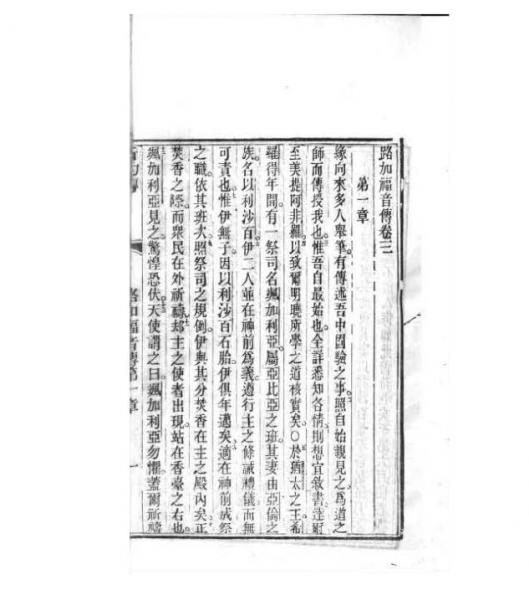 路加福音傳卷三
第一章
緣向來多人舉筆有傳述吾中固驗之事照自始親見之爲道之
師而傳授我也惟吾自最始也全詳悉知各情則想宜敘書達爾
至美提阿非羅以致爾明曉所學之道核實矣○於猶太之王希
羅得年間有一祭司名颯加利亞屬亞比亞之班其妻由亞倫之
族名以利沙百伊二人並在神前爲義遵行主之條誡禮儀而無
可責也惟伊無子因以利沙百石胎伊俱年邁矣適在神前成祭
之職依其班次照祭司之規例伊與其分焚香在主之殿內矣正
焚香之際而衆民在外祈禱却主之使者出現站在香臺之右也
颯加利亞見之驚惶恐伏天使謂之曰颯加利亞勿懼蓋爾祈禱
路加福音傳第一章
一